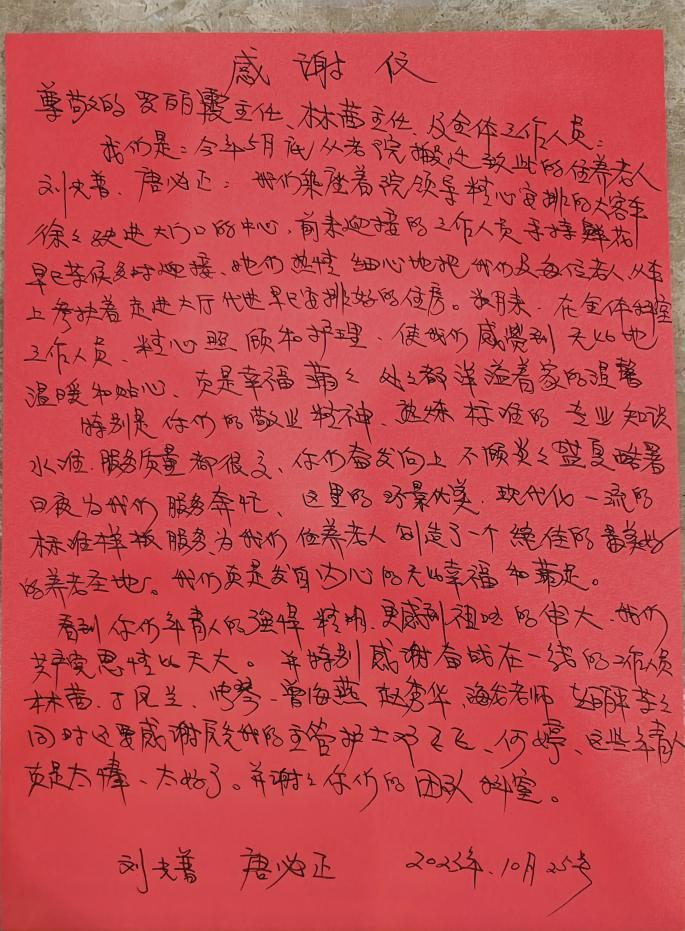 感谢信
尊敬的罗丽霞主任、林茜主任、及全体工作人员:
我们是:今年5月底从老院搬迁致此的住养老人
刘光普、唐必正:我们乘座着院领导精心安排的大客车
徐徐驶进大门口的中心,前来迎接的工作人员手持鲜花
早已等候多时迎接、她们热情细心地把我们及每位老人从车
上参扶着走进大厅代进早已安排好的住房。数月来、在全体科室
工作人员、精心照顾和护理、使我们感觉到无比地
温暖和贴心、真是幸福满满处处都洋溢着家的温馨
特别是你们的敬业精神、熟炼标准的专业知识
水准、服务质量都很高、你们奋发向上不顾炎炎盛夏酷暑
日夜为我们服务奔忙、这里的环景优美、现代化一流的
标准样板服务为我们住养老人创造了一个绝佳的最美好
的养老圣地。我们真是发自内心的无比幸福和满足。
看到你们年青人的强悍精明、更感到祖国的伟大、我们
共产党恩情比天大。并特别感谢奋战在一线的工作人员
林茜、丁凤兰、琴、曾海燕、赵秀华、海老师、赵丽萍等等
同时还要感谢我的主管护士邓飞飞、何婷、这些年青人
真是太棒、太好了。并谢谢你们的团队科室。
刘光普 唐必正 2023年、10月25号